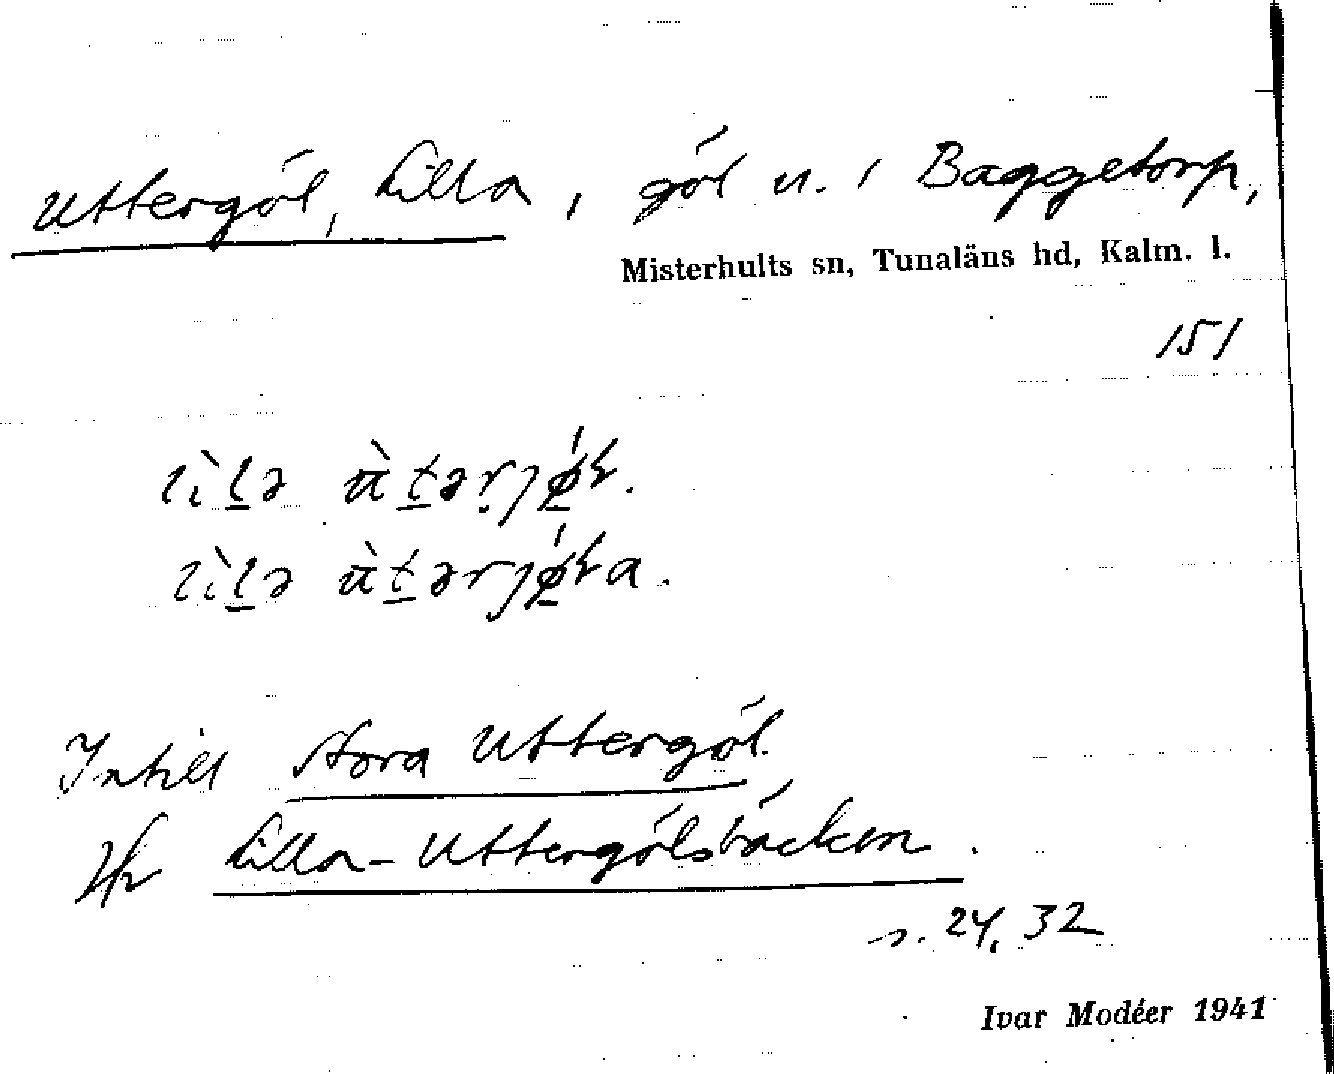 Uttergöl, Lilla, göl u. i Baggetorp,
Misterhults sn, Tunaläns hd, Kalm. l.
151
Intill Stora Uttergöl.
Hr Lilla-Uttergölsbäcken.
s. 24, 32
Ivar Modéer 1941